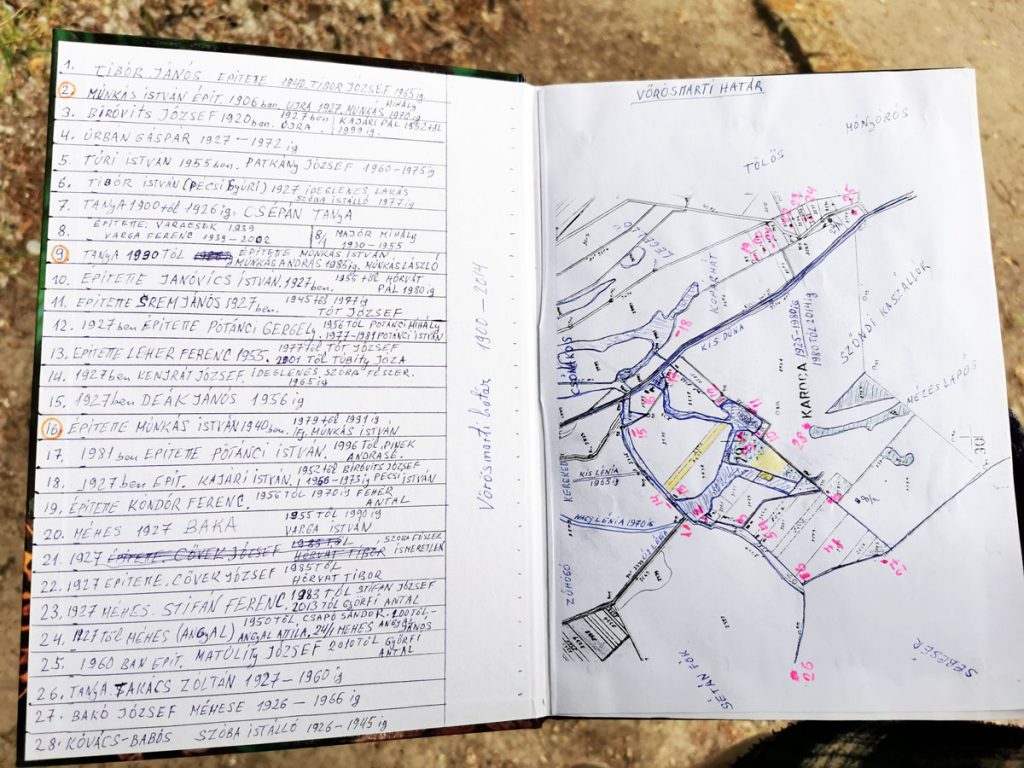 1. TIBÓR JÁNÓS ÉPÍTETE 1940. TIBÓR JÓZSEF 1965 ig
2. MÚNKÁS ISTVÁN ÉPIT. 1906 ban. UJRA 1927 MUNKÁS MIHÁLY 1970 ig
3. BIRÓVITS JÓZSEF 1920 ban. 1927 ben ÚJRA. KAJÁRI PÁL
4. ÚRBAN GÁSPÁR 1927 – 1972 ig
5. TÚRI ISTVÁN 1955 ben. PATKÁNY JÓZSEF 1960-1975 ig
6. TIBÓR ISTVÁN (PECSI GYÚRI) 1927 IDEGLENES LAKÁS SZÓBA ISTÁLLÓ 1977 ig
7. TANYA 1900 tól 1926 ig. CSÉPÁN TANYA
8. ÉPITETTE. VARAESEK 1939
VARGA FERENC 1939 – 2002
8/1 MAJÓR MIHÁLY 1930 – 1955
9. TANYA 1990 TÓL ÉPITETTE MÚNKÁS ISTVÁN
MÚNKÁS ANDRÁS 1985 ig. MÚNKÁS LÁSZLÓ
10. ÉPITETTE JANÓVICS ISTVÁN. 1927 ben. 1955 TÓL HÓRVÁT PÁL 1980 ig
11. ÉPITETTE SREM JÁNOS 1927 ben. 1945 tól 1977 ig TÓT JÓZSEF
12. 1927 ben ÉPITETTE PÓTÁNCI GERGELY 1956 TÓL PÓTÁNCI MIHÁLY
1977-1981 PÓTÁNCI ISTVÁN
13. ÉPITETTE LÉHER FERENC 1955. 1977 tól TÓT JÓZSEF
2001 TÓL TÚBITY JÓZA
14. 1927 ben KENJRAI JÓZSEF. IDEGLENES SZÓBA FÉSZER. 1965 ig
15. 1927 ben DEÁK JÁNÓS 1956 ig
16. ÉPITETTE MÚNKÁS ISTVÁN 1940 ben. 1979 tól 1991 ig ifj. MÚNKÁS ISTVÁN
17. 1981 ben ÉPITETTE PÓTÁNCI ISTVÁN. 1996 TÓL. PINEK ANDRÁSÉ.
18. 1927 ben ÉPIT. KAJÁRI ISTVÁN. 1952 tól BIRÓVITS JÓZSEF
1966-1973 ig PECSI ISTVÁN
19. ÉPITETTE KÓNDÓR FERENC. 1956 TÓL 1970 ig FEHÉR ANTAL
20. MÉHES 1927 BAKA 1955 TÓL 1990 ig VARGA ISTVÁN
21. 1927 ÉPITETTE. CÖVEK JÓZSEF 1985 TÓL HÓRVÁT TIBÓR SZÓBA FÉSZER ISMERETLEN
22. 1927 ÉPITETTE. CÖVEK JÓZSEF 1985 TÓL HÓRVÁT TIBÓR
23. 1927 MÉHES. STIFÁN FERENC. 1983 TÓL STIFÁN JÓZSEF
2013 TÓL GYÖRFI ANTAL
24. 1927 TÓL MÉHES (ANGYAL) 1950 TÓL. CSAPÓ SÁNDOR.
ANGYAL ATTILA, 24/1 MÉHES ANGYAL JÁNOS
25. 1960 BAN ÉPIT. MATÚLITY JÓZSEF 2010 TÓL GYÖRFI ANTAL
26. TANYA TAKÁCS ZÓLTÁN 1927 – 1960 ig
27. BAKÓ JÓZSEF MÉHESE 1926 – 1966 ig
28. KÓVÁCS-BABÓS SZÓBA ISTÁLLÓ 1926 – 1945 ig
Vörösmarti határ 1900 – 2014
VÖRÖSMARTI HATÁR
MÓNYÓRÓS
TÖLÖS
LEGELŐ
KOPARHÁT
KIS DÚNA
CSÓNAKDÚS
KARÓCA 1925-1980 ig
1980 TÓL 2014 ig
SZÓNDI KASZÁLLÓK
MÉZESLÁPÓS
KEREKED
KISLÉNIA
1965 ig
NAGYLÉNIA 1970 ig
ZÚHÓGÓ
SETÁNFÓK
SEBESÉR
18
25
24
28
27
26
15
14
11